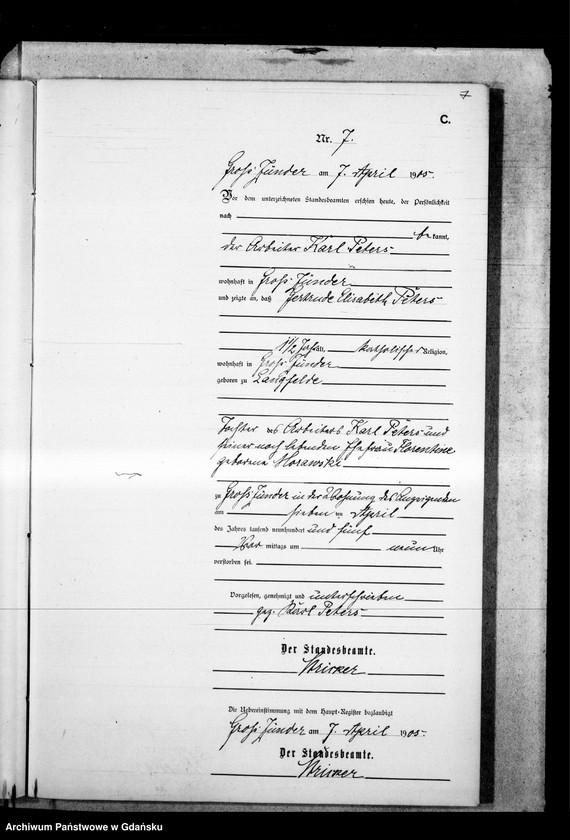 7
C.
Nr. 7.
Groß Zünder am 7. April 1905.
Vor dem unterzeichneten Standesbeamten erschien heute, der Persönlichkeit
nach
be kannt,
der Arbeiter Karl Peters
wohnhaft in Groß Zünder
und zeigte an, daß Gertrude Elisabeth Peters
1 1/2 Jahr alt, katholischer Religion,
wohnhaft in Groß Zünder
geboren zu Langfelde
Tochter des Arbeiters Karl Peters und
seiner noch lebenden Ehefrau Florentine
geborene Morawski
zu Groß Zünder in der Wohnung des Anzeigenden
am sieben ten April
des Jahres tausend neunhundert und fünf
Vor mittags um neun Uhr
verstorben sei.
Vorgelesen, genehmigt und unterschrieben
gez. Karl Peters
Der Standesbeamte.
Die Uebereinstimmung mit dem Haupt-Register beglaubigt
Groß Zünder am 7. April 1905.
Der Standesbeamte.
Archiwum Państwowe w Gdańsku